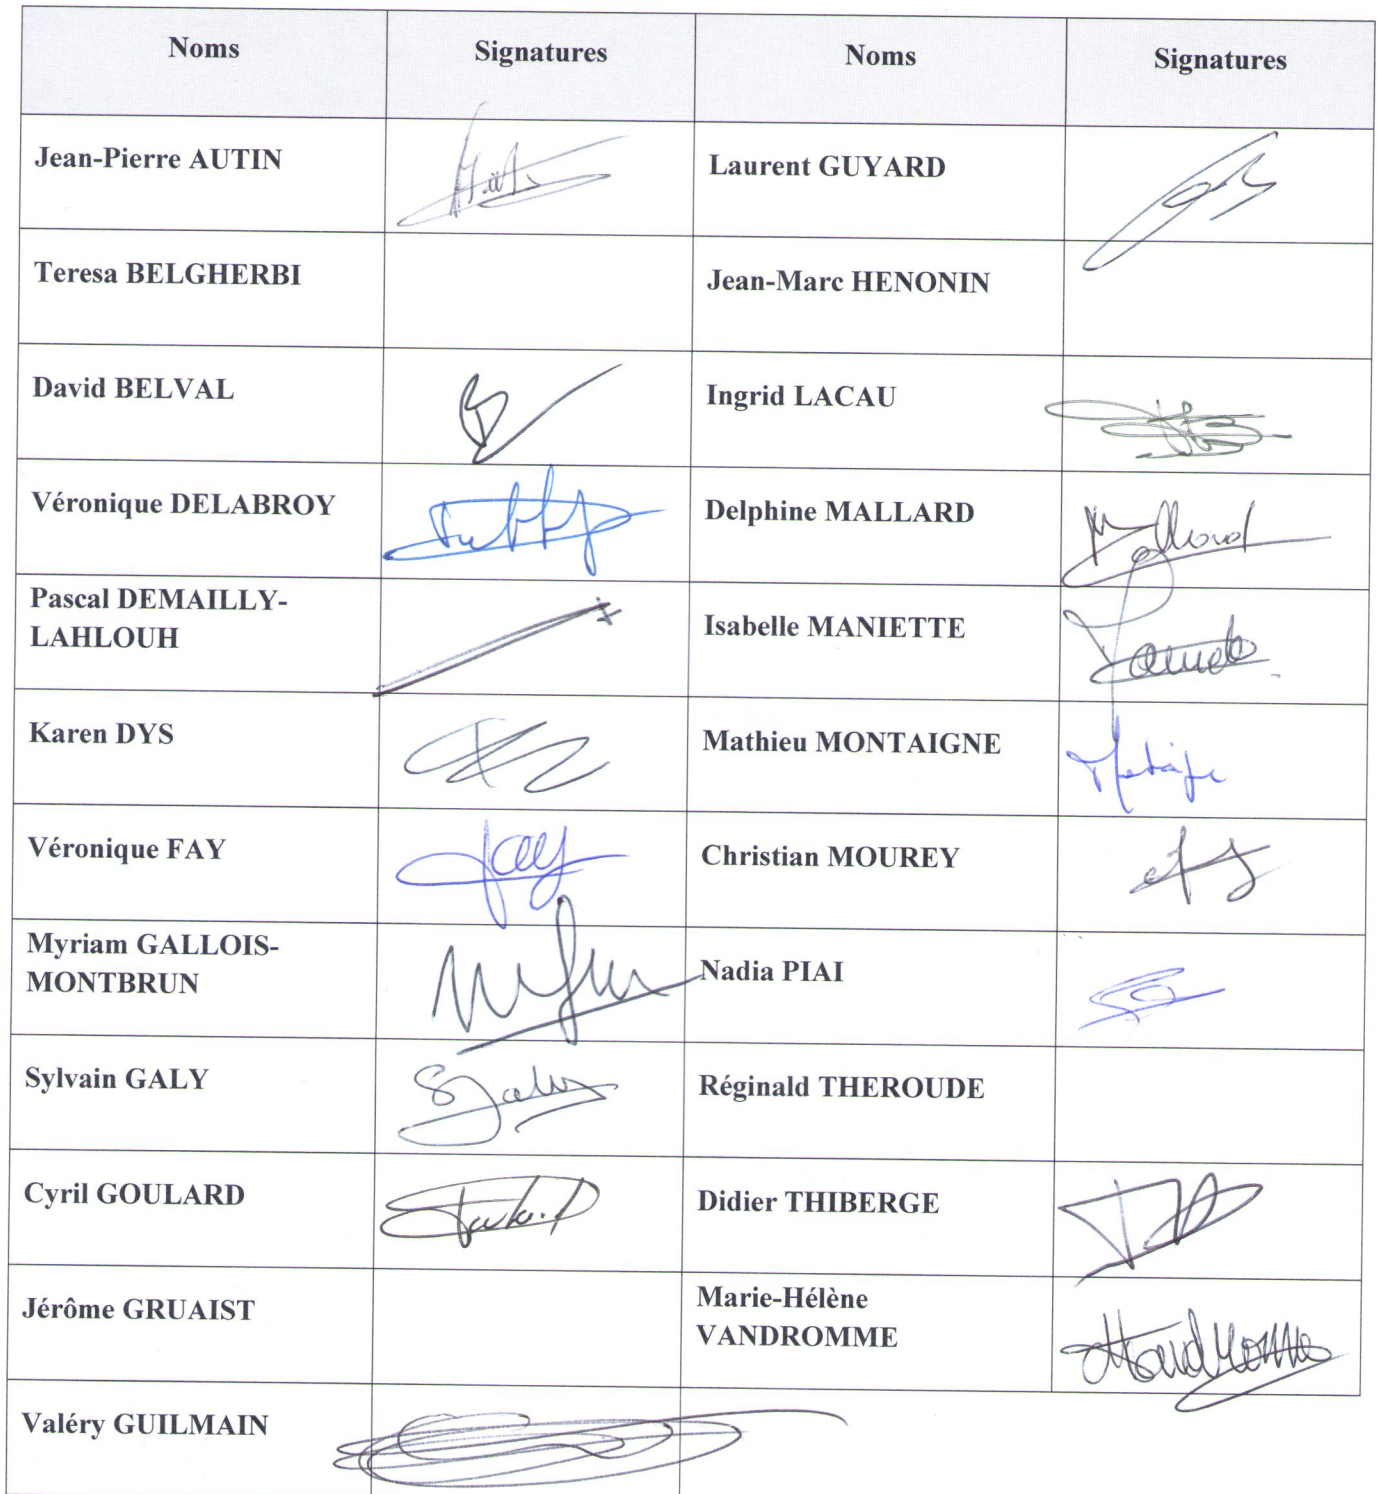 Noms Signatures Noms Signatures
Jean-Pierre AUTIN Laurent GUYARD
Teresa BELGHERBI Jean-Marc HENONIN
David BELVAL Ingrid LACAU
Véronique DELABROY Delphine MALLARD
Mallard
Pascal DEMAILLY-
LAHLOUH
Isabelle MANIETTE
Karen DYS Mathieu MONTAIGNE
Véronique FAY Christian MOUREY
Fay
Myriam GALLOIS-
MONTBRUN
Nadia PIAI
Sylvain GALY Réginald THEROUDE
S Galy
Cyril GOULARD Didier THIBERGE
Jérôme GRUAIST
Marie-Hélène
VANDROMME
Valéry GUILMAIN